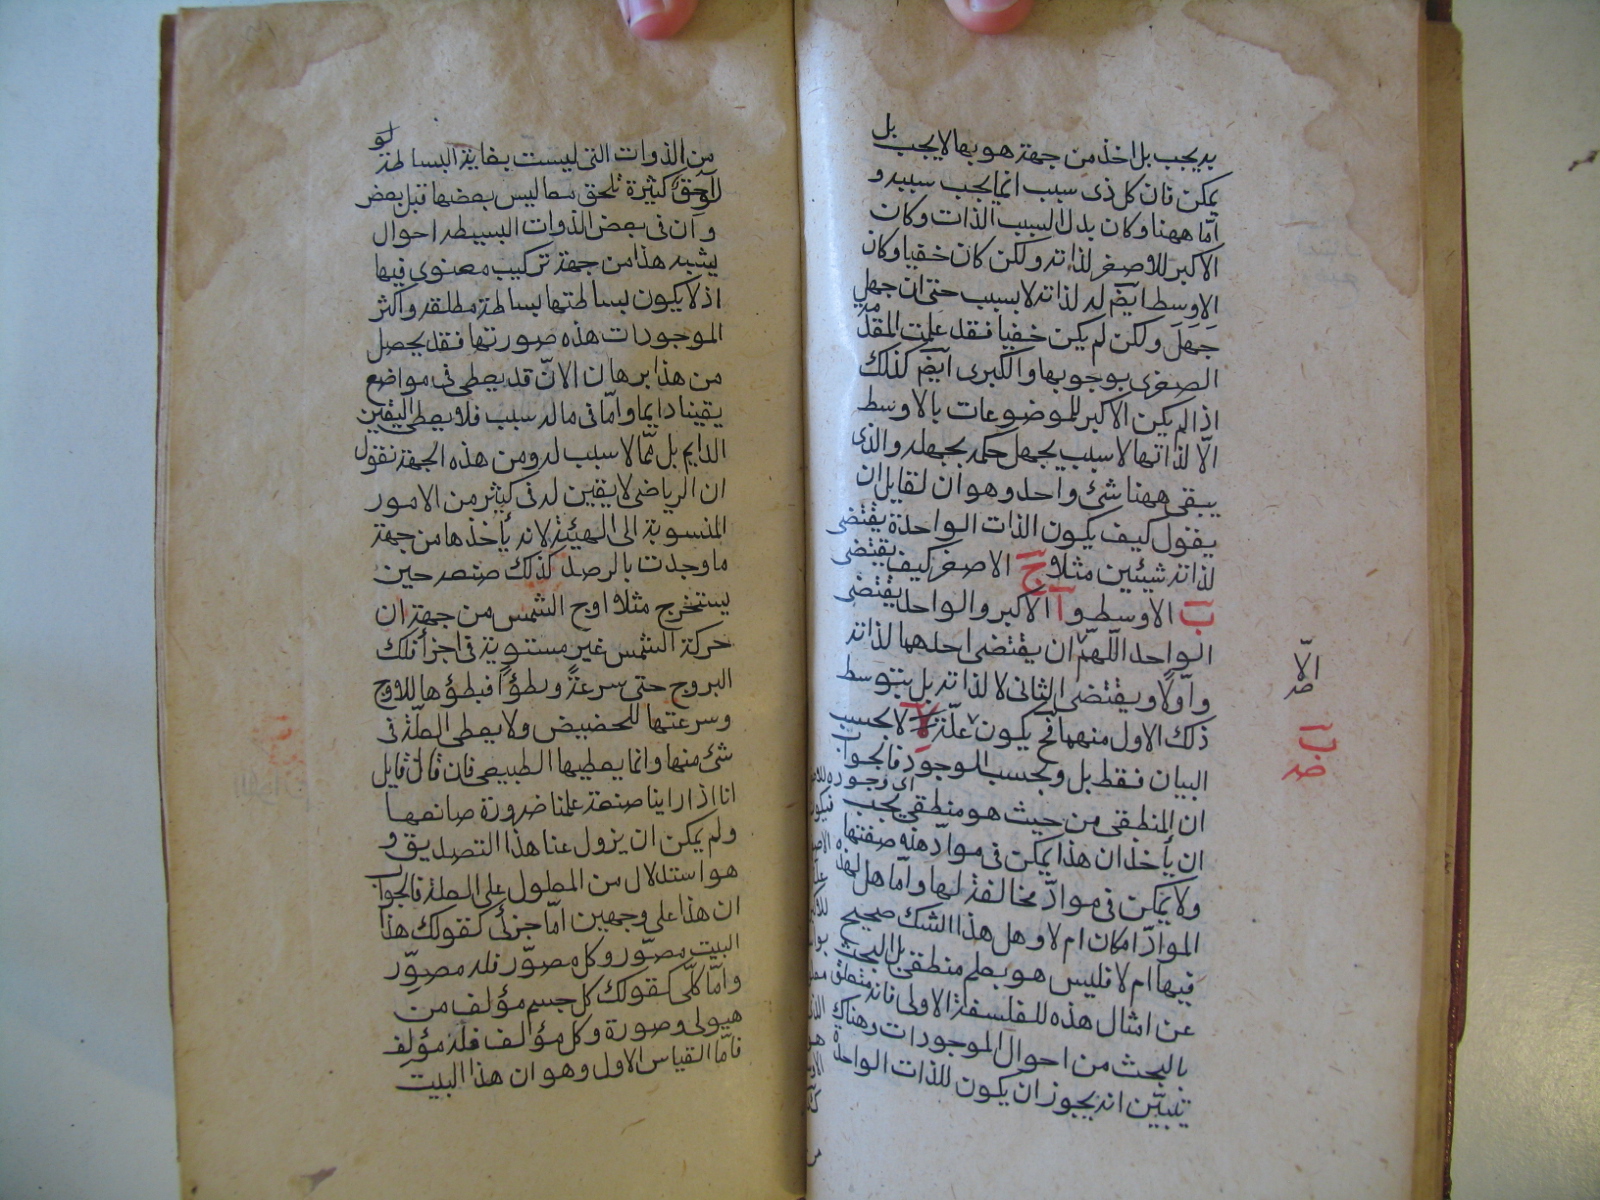 به يجب بل اخذ من جهة هو بها لا يجب بل
يمكن فان كل ذى سبب انما يجب بسببه و
امّا ههنا وكان بدل السبب الذات وكان
الاكبر للاصغر لذاته ولكن كان خفيا وكان
الاوسط ايضً له لذاته لا بسبب حتى ان جهل
جهل ولكن لم يكن خفيا فقد علمت المقدمة
الصغرى بوجوبها والكبرى ايضً كذلك
اذ لم يكن الاكبر للموضوعات بالاوسط
الّا لذاتها لا لسبب يجهل حكمه بجهله والذى
يبقى ههنا شئ واحد وهو ان لقايل ان
يقول كيف يكون الذات الواحدة يقتضى
لذاته شيئين مثلا وج الاصغر كيف يقتضى
ب الاوسط و آ الاكبر والواحد يقتضى
الواحد اللّهمّ ان يقتضى احدهما لذاته
واوّلا ويقتضى الثانى لا لذاته بل بتوسط
ذلك الاول منهما فح يكون علّة لا لا بحسب
البيان فقط بل وبحسب الموجود فالجواب
ان المنطقى من حيث هو منطقى يجب
ان يأخذ ان هذا يمكن فى موادّ هذه صفتها
ولا يمكن فى موادّ مخالفة لها وامّا هل لهذه
الموادّ امكان ام لا وهل هذا الشك صحيح
فيها ام لا فليس هو بعلم منطقى بل البحث
عن امثال هذه للفلسفة الاولى فانه متعلق
بالبحث من احوال الموجودات وهناك
تبيّن انه يجوز ان يكون للذات الواحدة
الّا
صح
ب
صح
اى وجوده للاصغر
من الذوات التى ليست بغاية البساطة لو
لواحق كثيرة تلحق معا ليس بعضها قبل بعض
و ان فى بعض الذوات البسيطه احوال
يشبه هذا من جهة تركيب معنوى فيها
اذ لا يكون بساطتها بساطة مطلقه واكثر
الموجودات هذه صورتها فقد يحصل
من هذا برهان الانّ قد يعطى فى مواضع
يقينا دايما وامّا فى ما له سبب فلا يعطى اليقين
الدايم بل ممّا لا سبب له ومن هذه الجهة نقول
ان الرياضى لا يقين له فى كثير من الامور
المنسوبة الى الهيئة لانه يأخذها من جهة
ما وجدت بالرصد كذلك صنعه حين
يستخرج مثلا اوج الشمس من جهة ان
حركة الشمس غير مستوية فى اجزأ فلك
البروج حتى سرعةً وبطؤاً فبطؤها للاوج
وسرعتها للحضيض ولا يعطى العلّة فى
شئ منها وانما يعطيها الطبيعى فان قال قايل
انا اذا راينا صنعة علمنا ضرورة صانعها
ولم يمكن ان يزول عنا هذا التصديق و
هو استدلال من المعلول على العلة فالجواب
ان هذا على وجهين امّا جزئى كقولك هذا
البيت مصوّر وكل مصوّر فله مصوّر
وامّا كلّى كقولك كل جسم مؤلف من
هيولى وصورة وكل مؤلف فله مؤلف
فامّا القياس الاول وهو ان هذا البيت